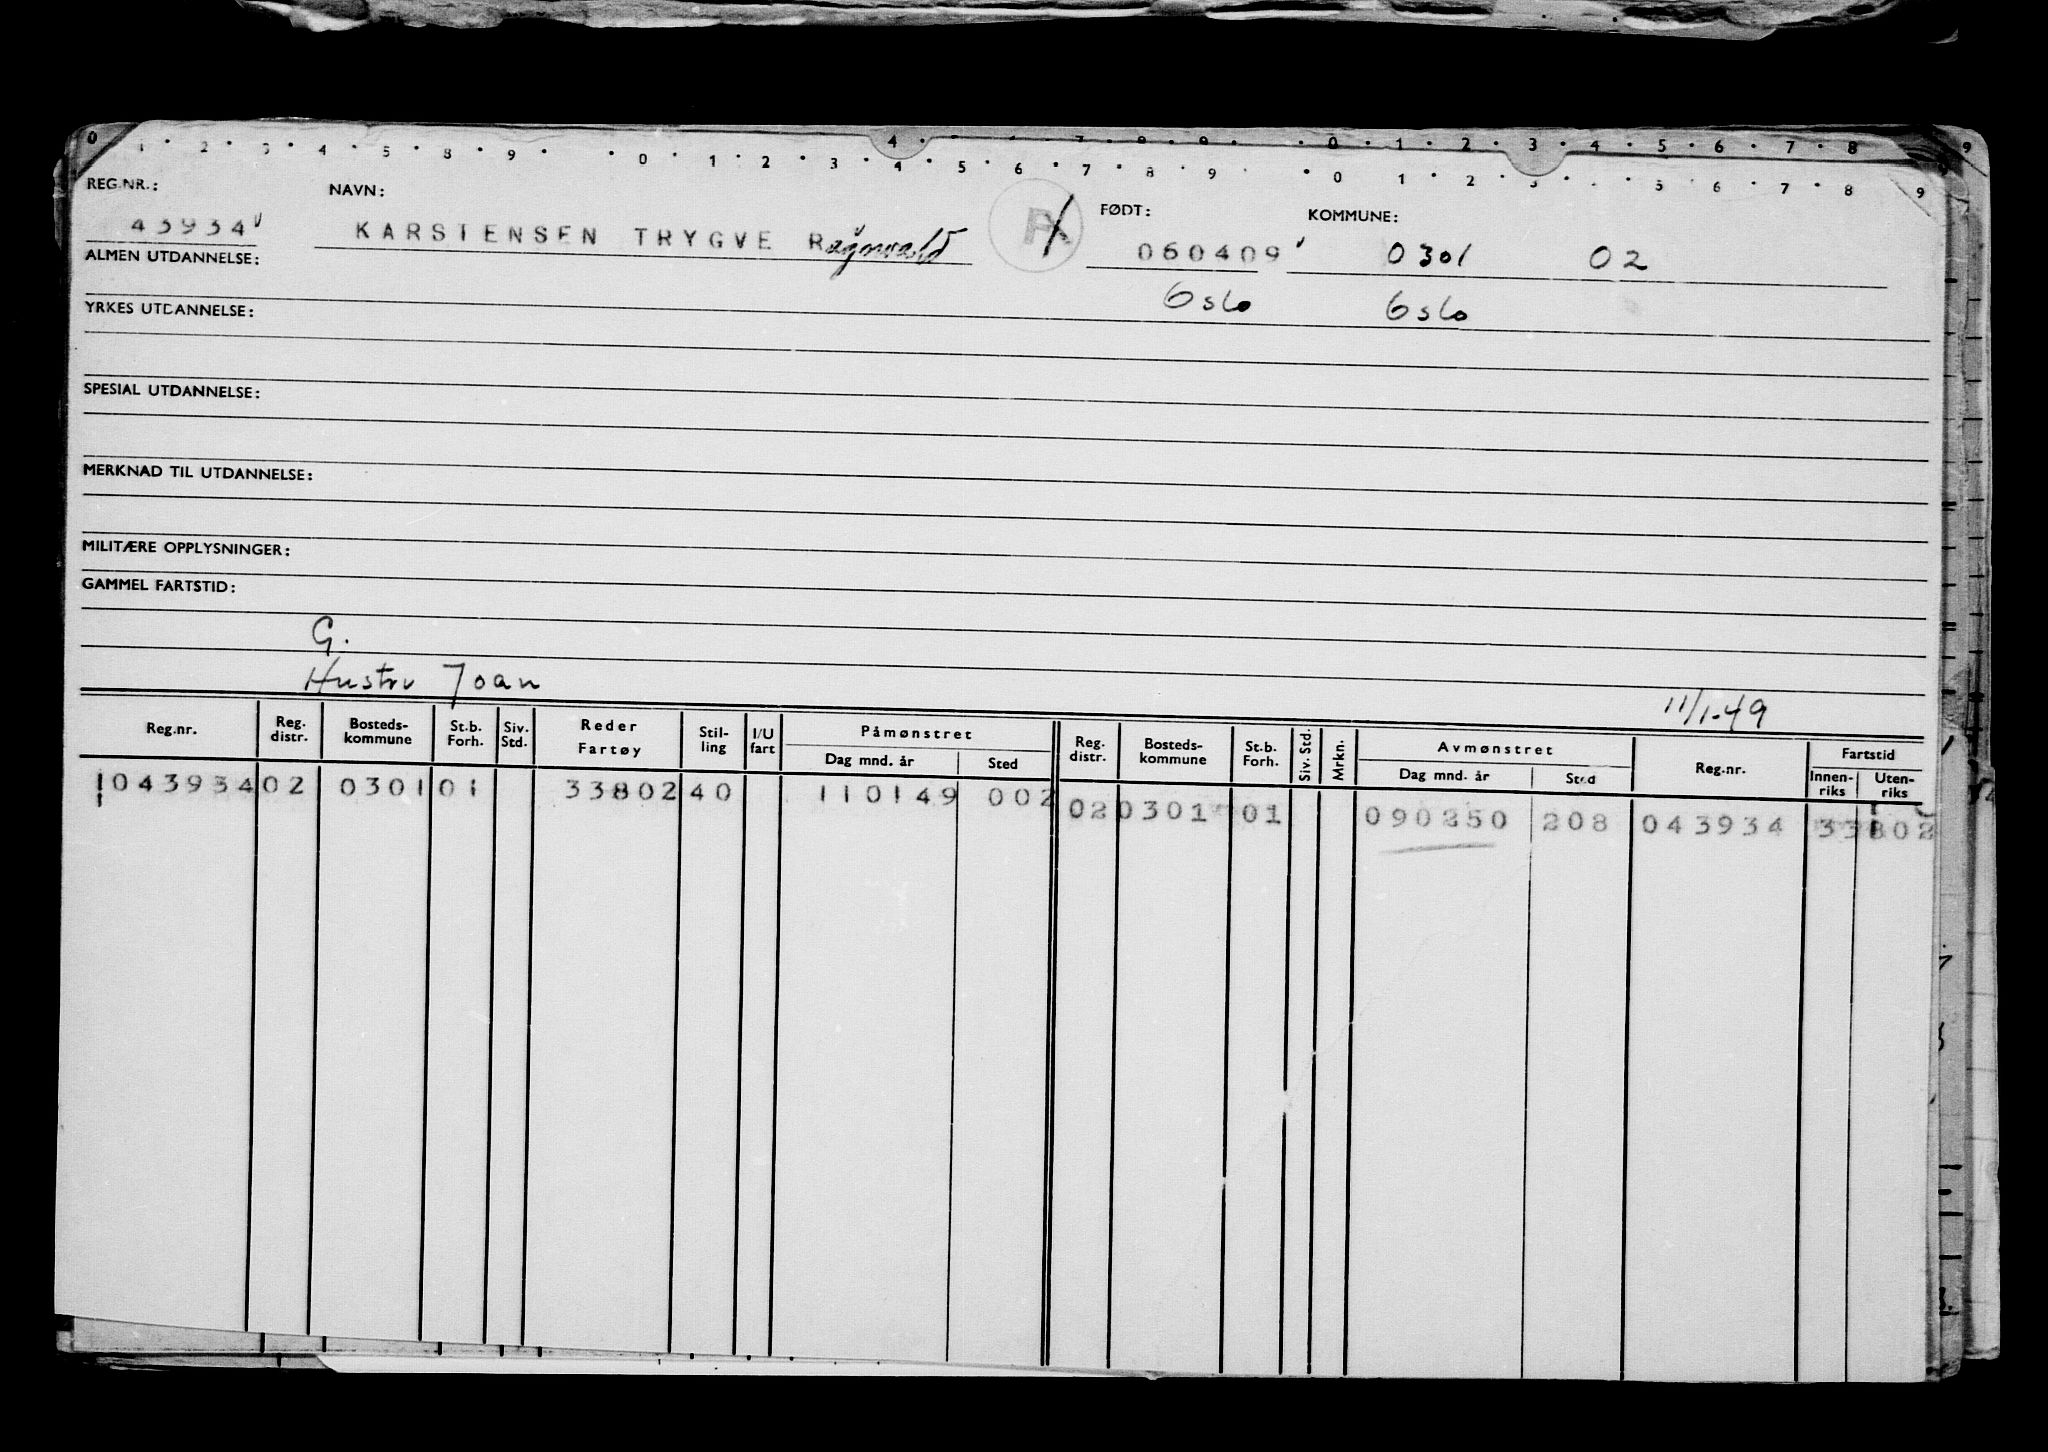 0 1 2 3 4 5 8 9 0 1 2 3 4 5 6 7 8 9 0 1 2 3 4 5 6 7 8 9
REG.NR.: NAVN: FØDT: KOMMUNE:
43934 KARSTENSEN TRYGVE Ragnvald 060409 0301 02
ALMEN UTDANNELSE: Oslo Oslo
YRKES UTDANNELSE:
SPESIAL UTDANNELSE:
MERKNAD TIL UTDANNELSE:
MILITÆRE OPPLYSNINGER:
GAMMEL FARTSTID:
G.
Hustru Joan
11/1-49
Reg.nr. Reg. distr. Bosteds-kommune St.b. Forh. Siv. Std. Reder Fartøy Stil-ling I/U fart Påmønstret Dag mnd. år Sted Reg. distr. Bosteds-kommune St.b. Forh. Siv. Std. Mrkn. Avmønstret Dag mnd. år Sted Reg.nr. Fartstid Innen-riks Uten-riks
043934 02 0301 01 33802 40 110149 002 02 0301 01 090250 208 043934 33802